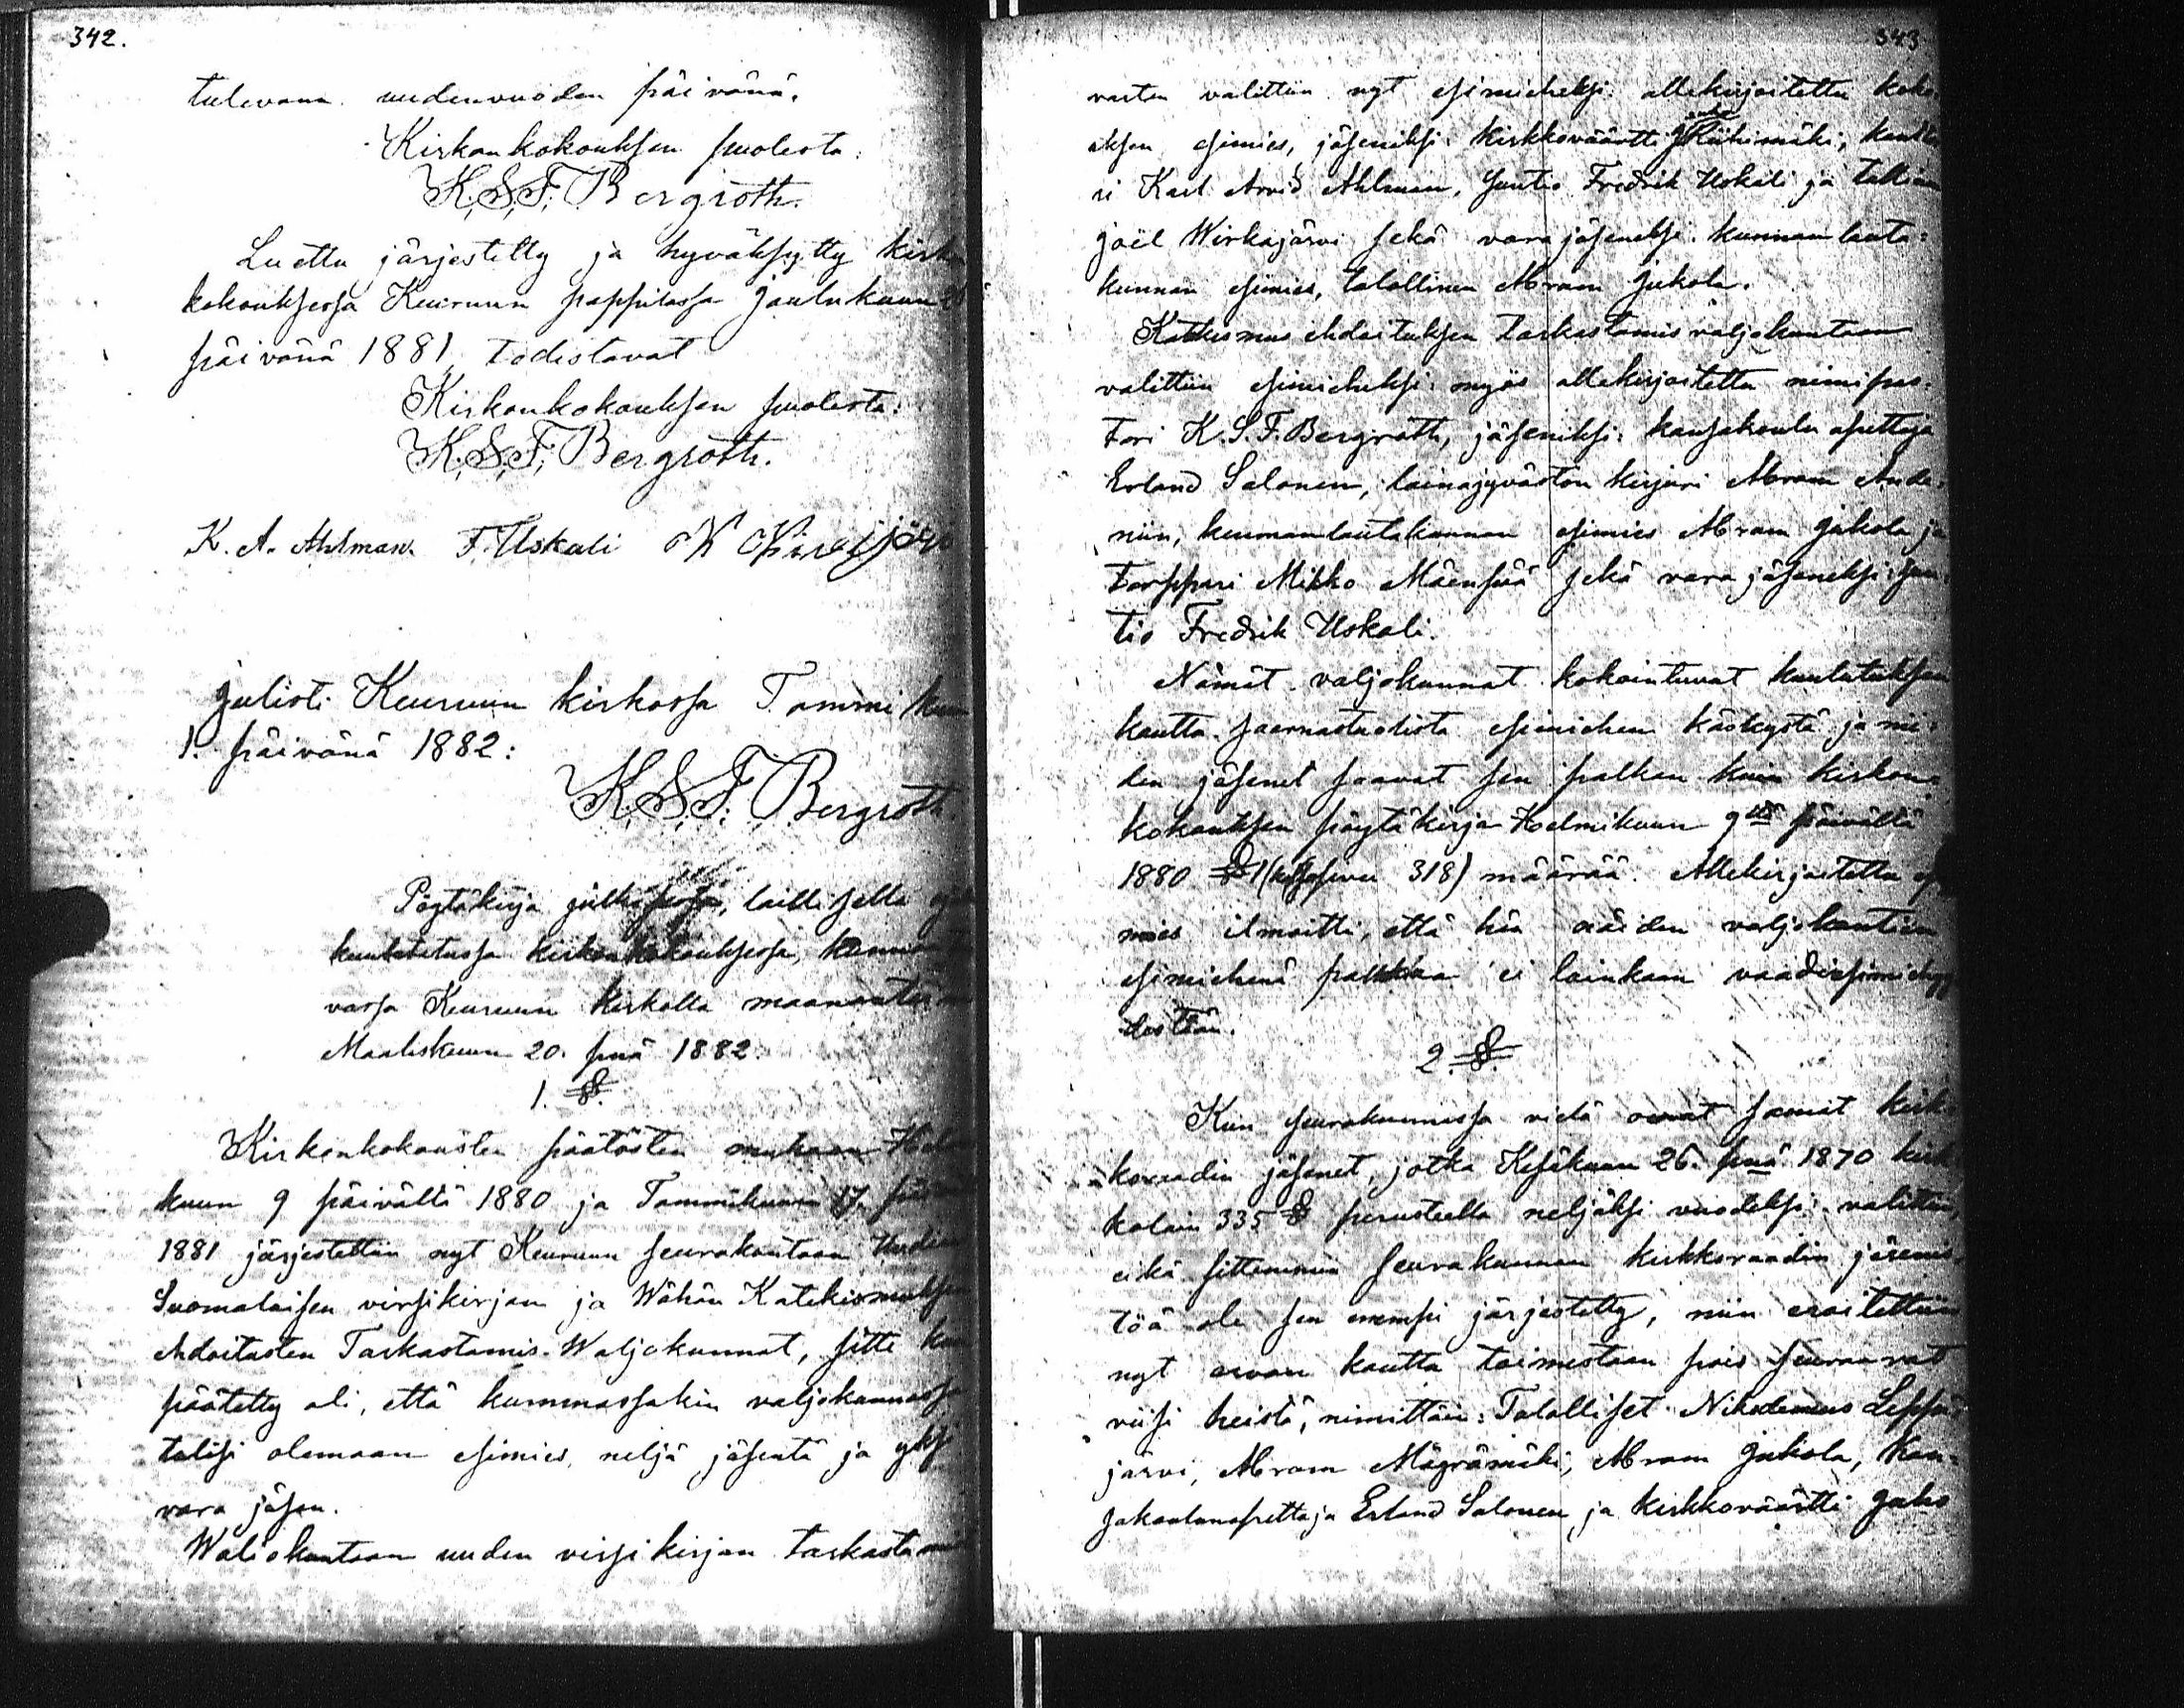 342.
tulevana uudenvuoden päivänä.
Kirkonkokouksen puolesta:
K. S. F. Bergroth.
Luettu järjestetty ja hyväksytty kirkon
kokouksessa Keuruun pappilassa Joulukuun
päivänä 1881, todistavat
Kirkonkokouksen puolesta:
K. S. F. Bergroth.
K. A. Ahlman. F. Uskali
Julisti Keuruun kirkossa Tammikuun
1. päivänä 1882:
K. S. F. Bergroth
Pöytäkirja laillisella
kuulutetussa kirkonkokouksessa,
vassa Keuruun kirkolla maanantaina
Maaliskuun 20. pnä 1882.
1. §.
Kirkonkokousten päätösten mukaan
kuun 9 päivältä 1880 ja Tammikuun 17.
1881 järjestettiin nyt Keuruun seurakuntaan Uuden
Suomalaisen virsikirjan ja Wähän Katekismuksen
ehdoitusten Tarkastamis-Waljokunnat, sitte kun
päätetty oli, että kummassakin valjokunnassa
tulisi olemaan esimies, neljä jäsentä ja yksi
vara jäsen.
Waljokuntaan uuden virsikirjan tarkastamis
343
varten valittiin nyt esimieheksi: allekirjoitettu koko-
uksen esimies, jäseniksi: kirkkoväärtti Riihimäki,
ri Karl Arvid Ahlman, Suntio Fredrik Uskali ja
Joël Wirkajärvi sekä varajäseneksi: kunnan lauta-
kunnan esimies, talollinen Abram Jukola.
Katkismus ehdoituksen tarkastamisvaljokuntaan
valittiin esimieheksi: myös allekirjoitettu nimipas-
tori K. S. F. Bergroth, jäseniksi: kansakoulu opettaja
Erland Salonen, lainajyvästön kirjuri Abram Ande-
niin, kunnanlautakunnan esimies Abram Jukola ja
torppari Mikko Mäenpää sekä vara jäseneksi: Sun-
tio Fredrik Uskali.
Nämät valjokunnat kokointuvat kuulutuksen
kautta saarnastuolista esimiehen käskystä ja nii-
den jäsenet saavat sen palkan kuin kirkon-
kokouksen pöytäkirja Helmikuun 9 päivältä
1880 § 1 (katso sivu 318) määrää. Allekirjoitettu esi
mies ilmoitti, että hän näiden valjokuntien
esimiehenä palkkaa ei lainkaan vaadi esimiehyy
destään.
2. §.
Kun seurakunnassa vielä ovat samat kirk-
koraadin jäsenet, jotka Kesäkuun 26. pnä 1870 kirk
kolain 335 § perusteella neljäksi vuodeksi valittiin,
eikä sittemmin seurakunnan kirkkoraadin jäsenis-
töä ole sen enempi järjestetty, niin eroitettiin
nyt arvan kautta toimestaan pois seuraavat
viisi heistä, nimittäin: Talolliset Nikodemus Leppä-
järvi, Abram Mäyrämäki, Abram Jukola, Kan-
sakoulunopettaja Erland Salonen ja kirkkoväärtti Juho